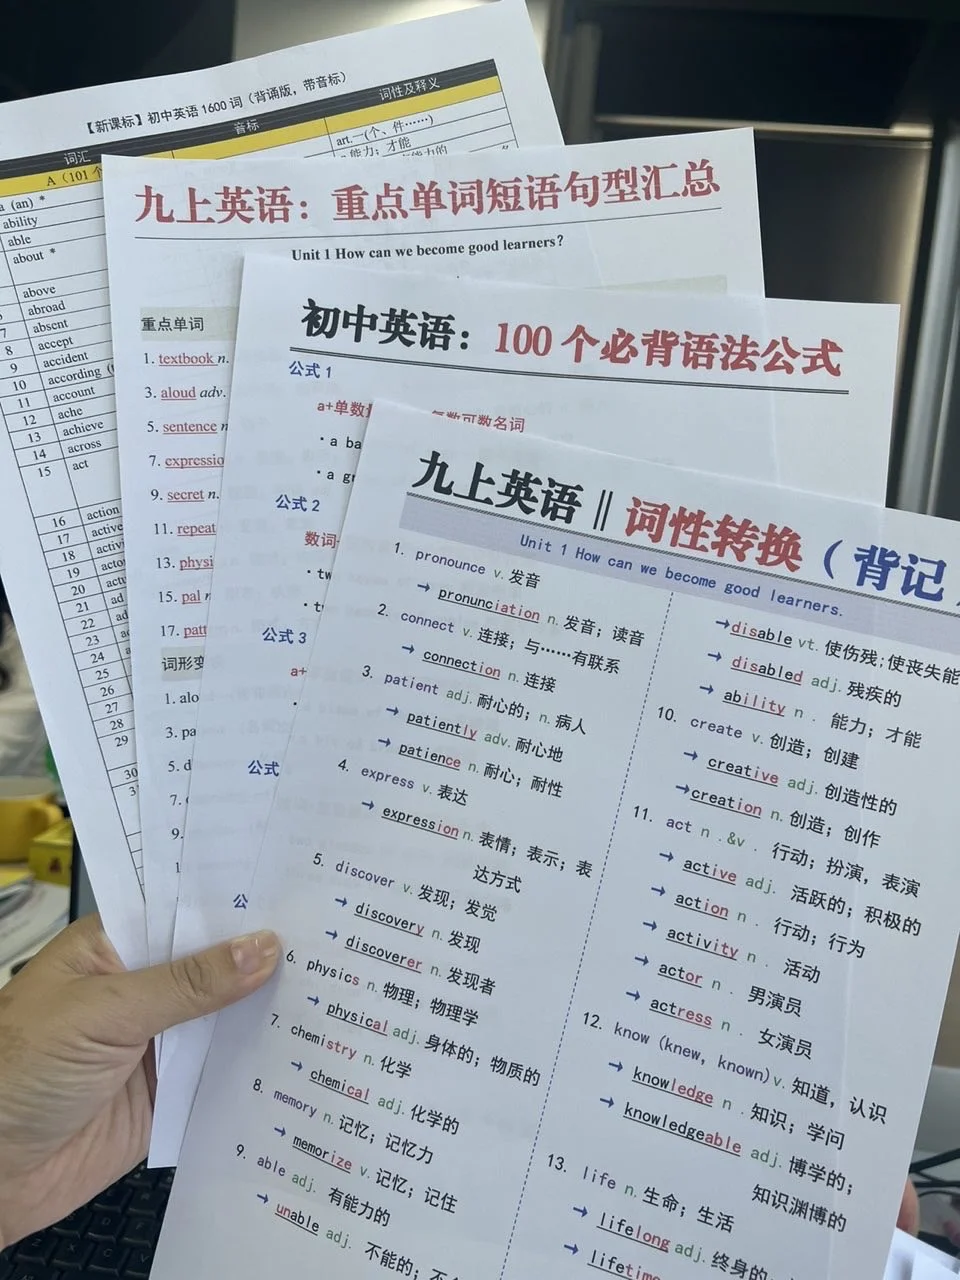 【新课标】初中英语1600词（背诵版，带音标）
词汇 音标 词性及释义
A（101个
a (an) * art.一(个、件……)
ability 能力；才能
able
about *
above
abroad
7 absent
8 accept
9 accident
10 according
11 account
12 ache
13 achieve
14 across
15 act
16 action
17 active
18
19
20
21 ad
22 ad
23
24
25
26
27
28
29
30
九上英语：重点单词短语句型汇总
Unit 1 How can we become good learners?
重点单词
1. textbook n.
3. aloud adv.
5. sentence n
7. expressio
9. secret n.
11. repeat
13. physi
15. pal n
17. patt
词形变
1. alo
3. pa
5. d
7.
9.
初中英语：100个必背语法公式
公式 1
a+单数 复数可数名词
· a ba
· a gr
公式 2
数词
· tw
公式 3
a+
公式
公
九上英语‖词性转换（背记
Unit 1 How can we become good learners.
1. pronounce v. 发音
→ pronunciation n. 发音；读音
2. connect v. 连接；与……有联系
→ connection n. 连接
3. patient adj. 耐心的；n. 病人
→ patiently adv. 耐心地
→ patience n. 耐心；耐性
4. express v. 表达
→ expression n. 表情；表示；表
达方式
5. discover v. 发现；发觉
→ discovery n. 发现
→ discoverer n. 发现者
6. physics n. 物理；物理学
→ physical adj. 身体的；物质的
7. chemistry n. 化学
→ chemical adj. 化学的
8. memory n. 记忆；记忆力
→ memorize v. 记忆；记住
9. able adj. 有能力的
→ unable adj. 不能的；不
→disable vt. 使伤残；使丧失能
→ disabled adj. 残疾的
→ ability n . 能力；才能
10. create v. 创造；创建
→ creative adj. 创造性的
→creation n. 创造；创作
11. act n .&v . 行动；扮演，表演
→ active adj. 活跃的；积极的
→ action n . 行动；行为
→ activity n . 活动
→ actor n . 男演员
→ actress n . 女演员
12. know (knew, known)v. 知道，认识
→ knowledge n . 知识；学问
→ knowledgeable adj. 博学的；
知识渊博的
13. life n. 生命；生活
→ lifelong adj. 终身的
→ lifetime